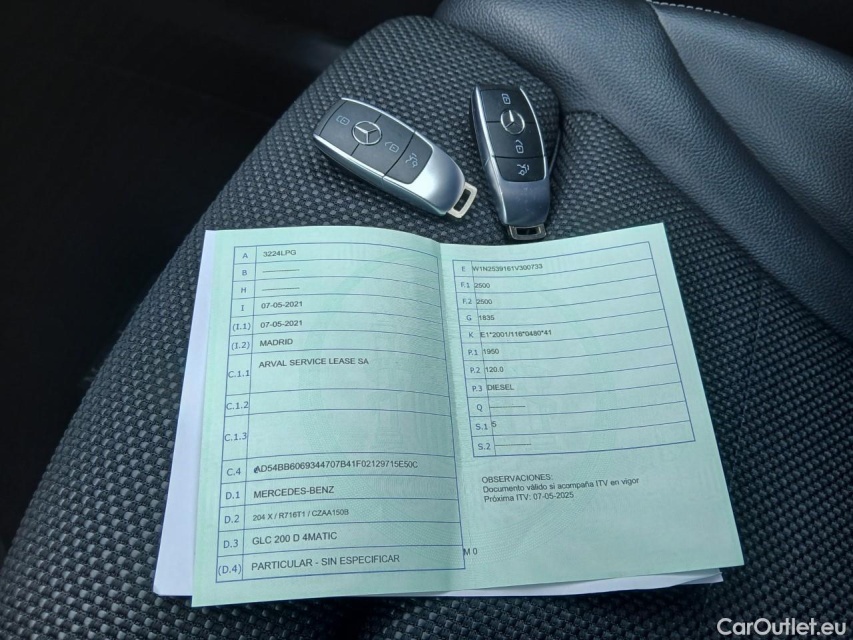 A 3224LPG
B
H
I 07-05-2021
(I.1) 07-05-2021
(I.2) MADRID
C.1.1 ARVAL SERVICE LEASE SA
C.1.2
C.1.3
C.4 AD54BB6069344707B41F02129715E50C
D.1 MERCEDES-BENZ
D.2 204 X / R716T1 / CZAA150B
D.3 GLC 200 D 4MATIC
(D.4) PARTICULAR - SIN ESPECIFICAR
E W1N2539161V300733
F.1 2500
F.2 2500
G 1835
K E1*2001/116*0480*41
P.1 1950
P.2 120.0
P.3 DIESEL
Q
S.1 5
S.2
OBSERVACIONES:
Documento válido si acompaña ITV en vigor
Próxima ITV: 07-05-2025
M 0
CarOutlet.eu